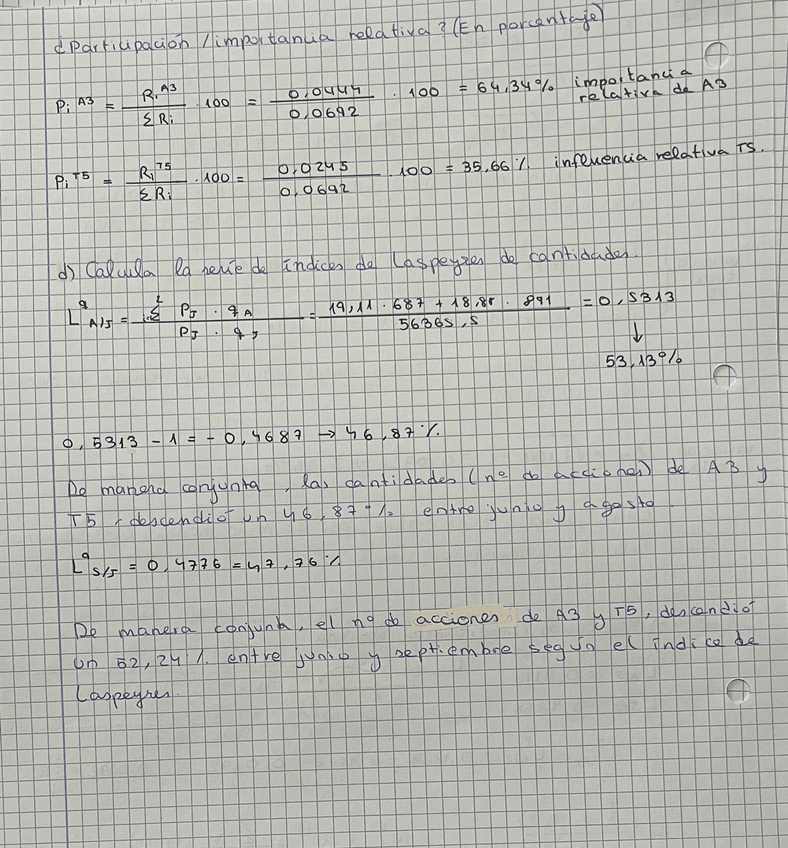 ¿Participación / importancia relativa? (En porcentaje)
Pi^A3 = Ri^A3 / ΣRi · 100 = 0,0444 / 0,0692 · 100 = 64,34% importancia relativa de A3
Pi^T5 = Ri^T5 / ΣRi · 100 = 0,0245 / 0,0692 · 100 = 35,66% influencia relativa T5.
d) Calcula la serie de índices de Laspeyres de cantidades.
L^q A/J = Σ PJ · qA / PJ · qJ = 19,11 · 687 + 18,85 · 891 / 56365,5 = 0,5313
↓
53,13%
0,5313 - 1 = - 0,4687 → 46,87%.
De manera conjunta, las cantidades (nº de acciones) de A3 y
T5, descendió un 46,87% entre junio y agosto.
L^q S/J = 0,4776 = 47,76%
De manera conjunta, el nº de acciones de A3 y T5, descendió
un 52,24% entre junio y septiembre según el índice de
Laspeyres.